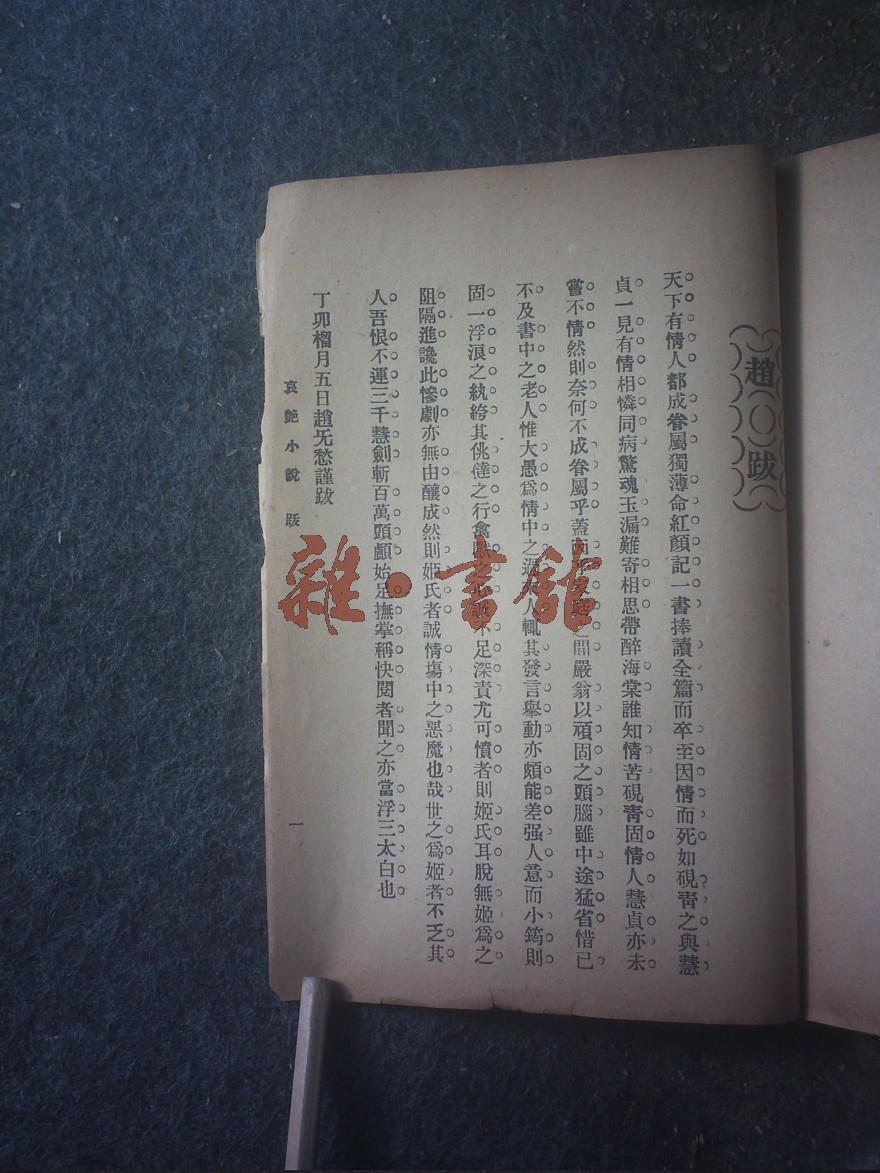 趙〇跋
天下有情人都成眷屬獨薄命紅顏記一書捧讀全篇而卒至因情而死如硯青之與慧
貞一見有情相憐同病驚魂玉漏難寄相思帶醉海棠誰知情苦硯青固情人慧貞亦未
嘗不情然則奈何不成眷屬乎蓋之間嚴翁以頑固之頭腦雖中途猛省惜已
不及書中之老人惟大愚爲情中之過來人輒其發言舉動亦頗能差强人意而小筠則
固一浮浪之紈絝其佻㒓之行禽獸之心不足深責尤可憤者則姬氏耳脫無姬爲之
阻隔進讒此慘劇亦無由釀成然則姬氏者誠情塲中之惡魔也哉世之爲姬者不乏其
人吾恨不運三千慧劍斬百萬頭顱始足撫掌稱快閱者聞之亦當浮三太白也
丁卯榴月五日趙旡愁謹跋
哀艶小說 跋
一
雜·書館